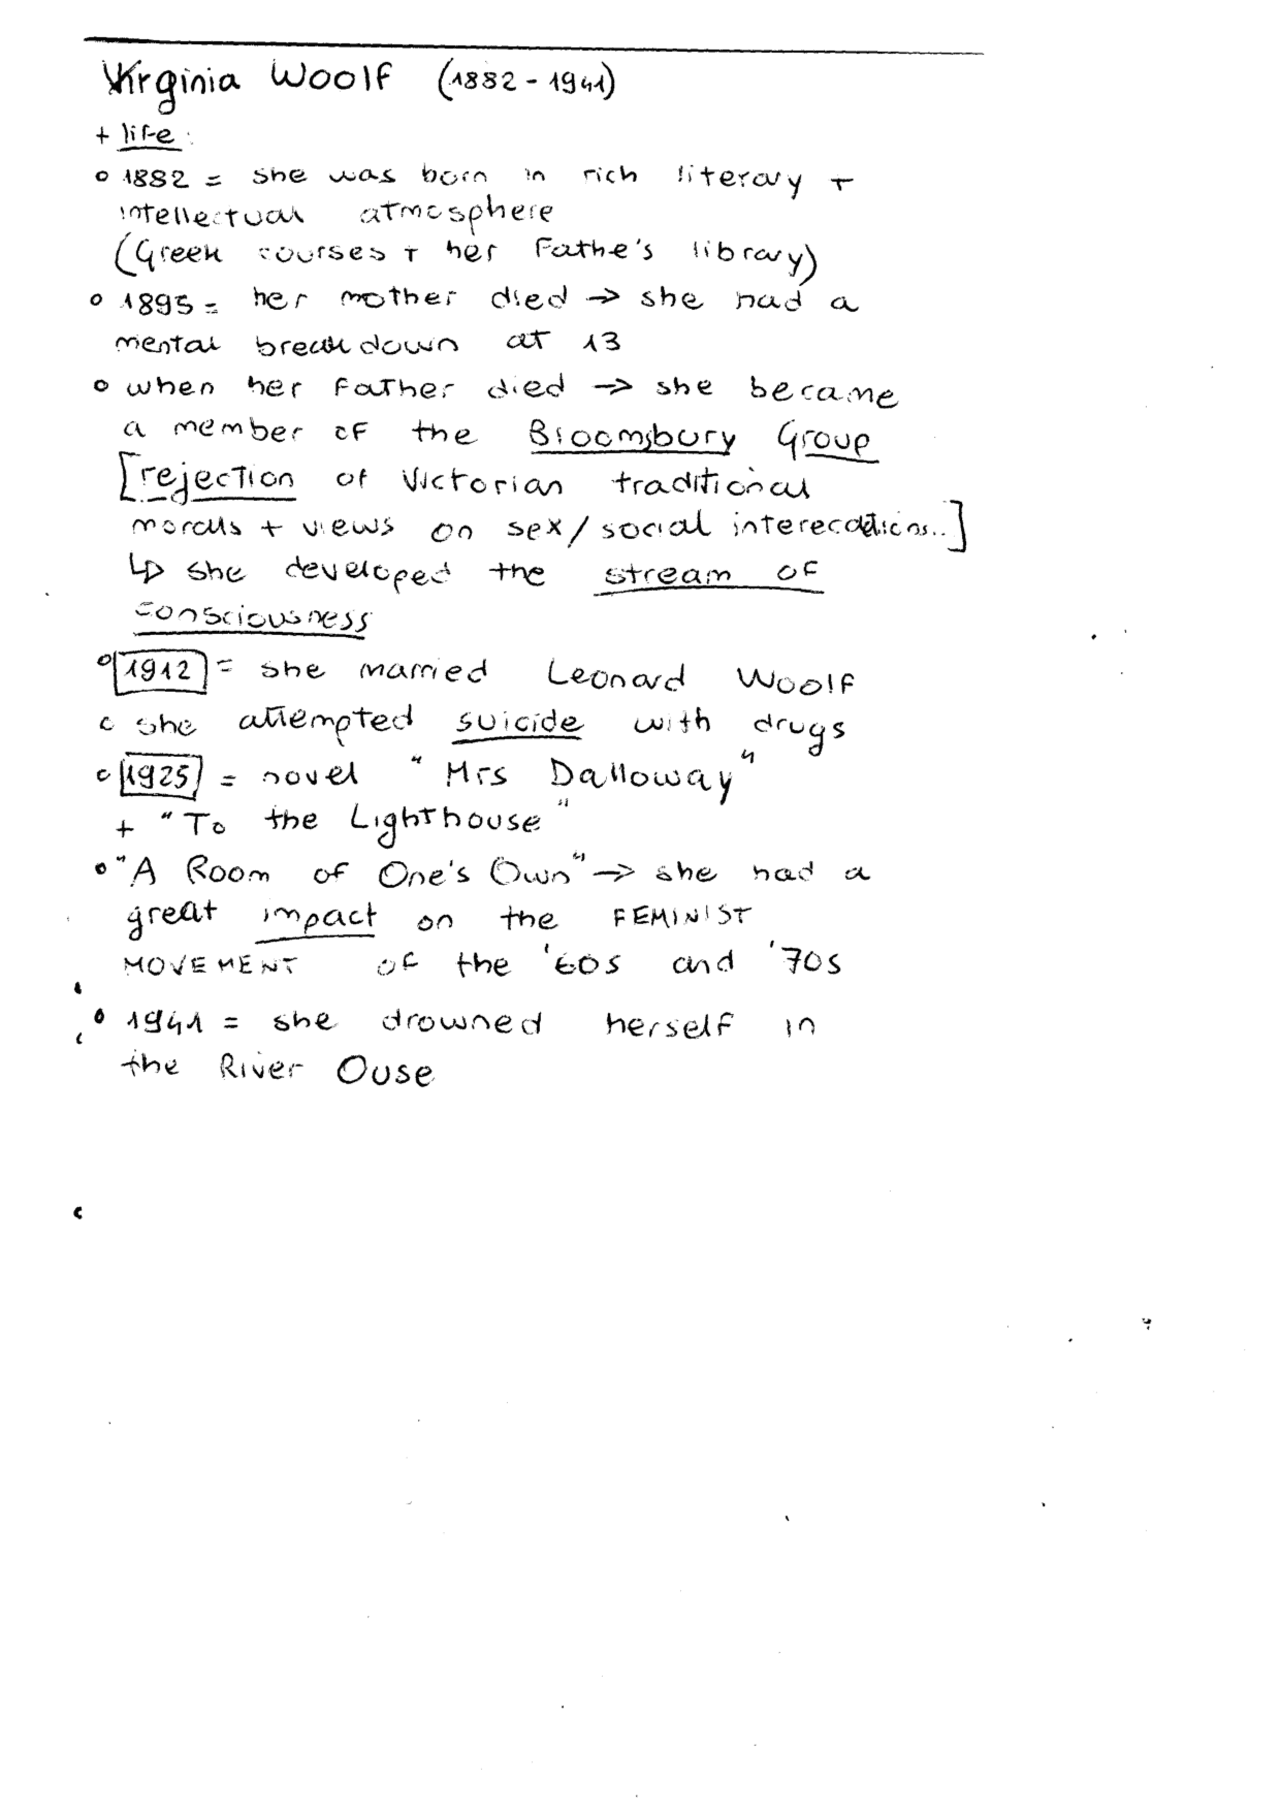 Virginia Woolf (1882 - 1941)
+ life:
o 1882 = she was born in rich literary +
intellectual atmosphere
(Greek courses + her Fathe's library)
o 1895 = her mother died → she had a
mental breakdown at 13
o when her Father died → she became
a member of the Bloomsbury Group
[rejection of Victorian traditional
morals + views on sex/social
↳ she developed the stream of
consciousness
o 1912 = she married Leonard Woolf
o she attempted suicide with drugs
o 1925 = novel "Mrs Dalloway"
+ "To the Lighthouse"
o "A Room of One's Own" → she had a
great impact on the FEMINIST
MOVEMENT of the '60s and '70s
o 1941 = she drowned herself in
the River Ouse